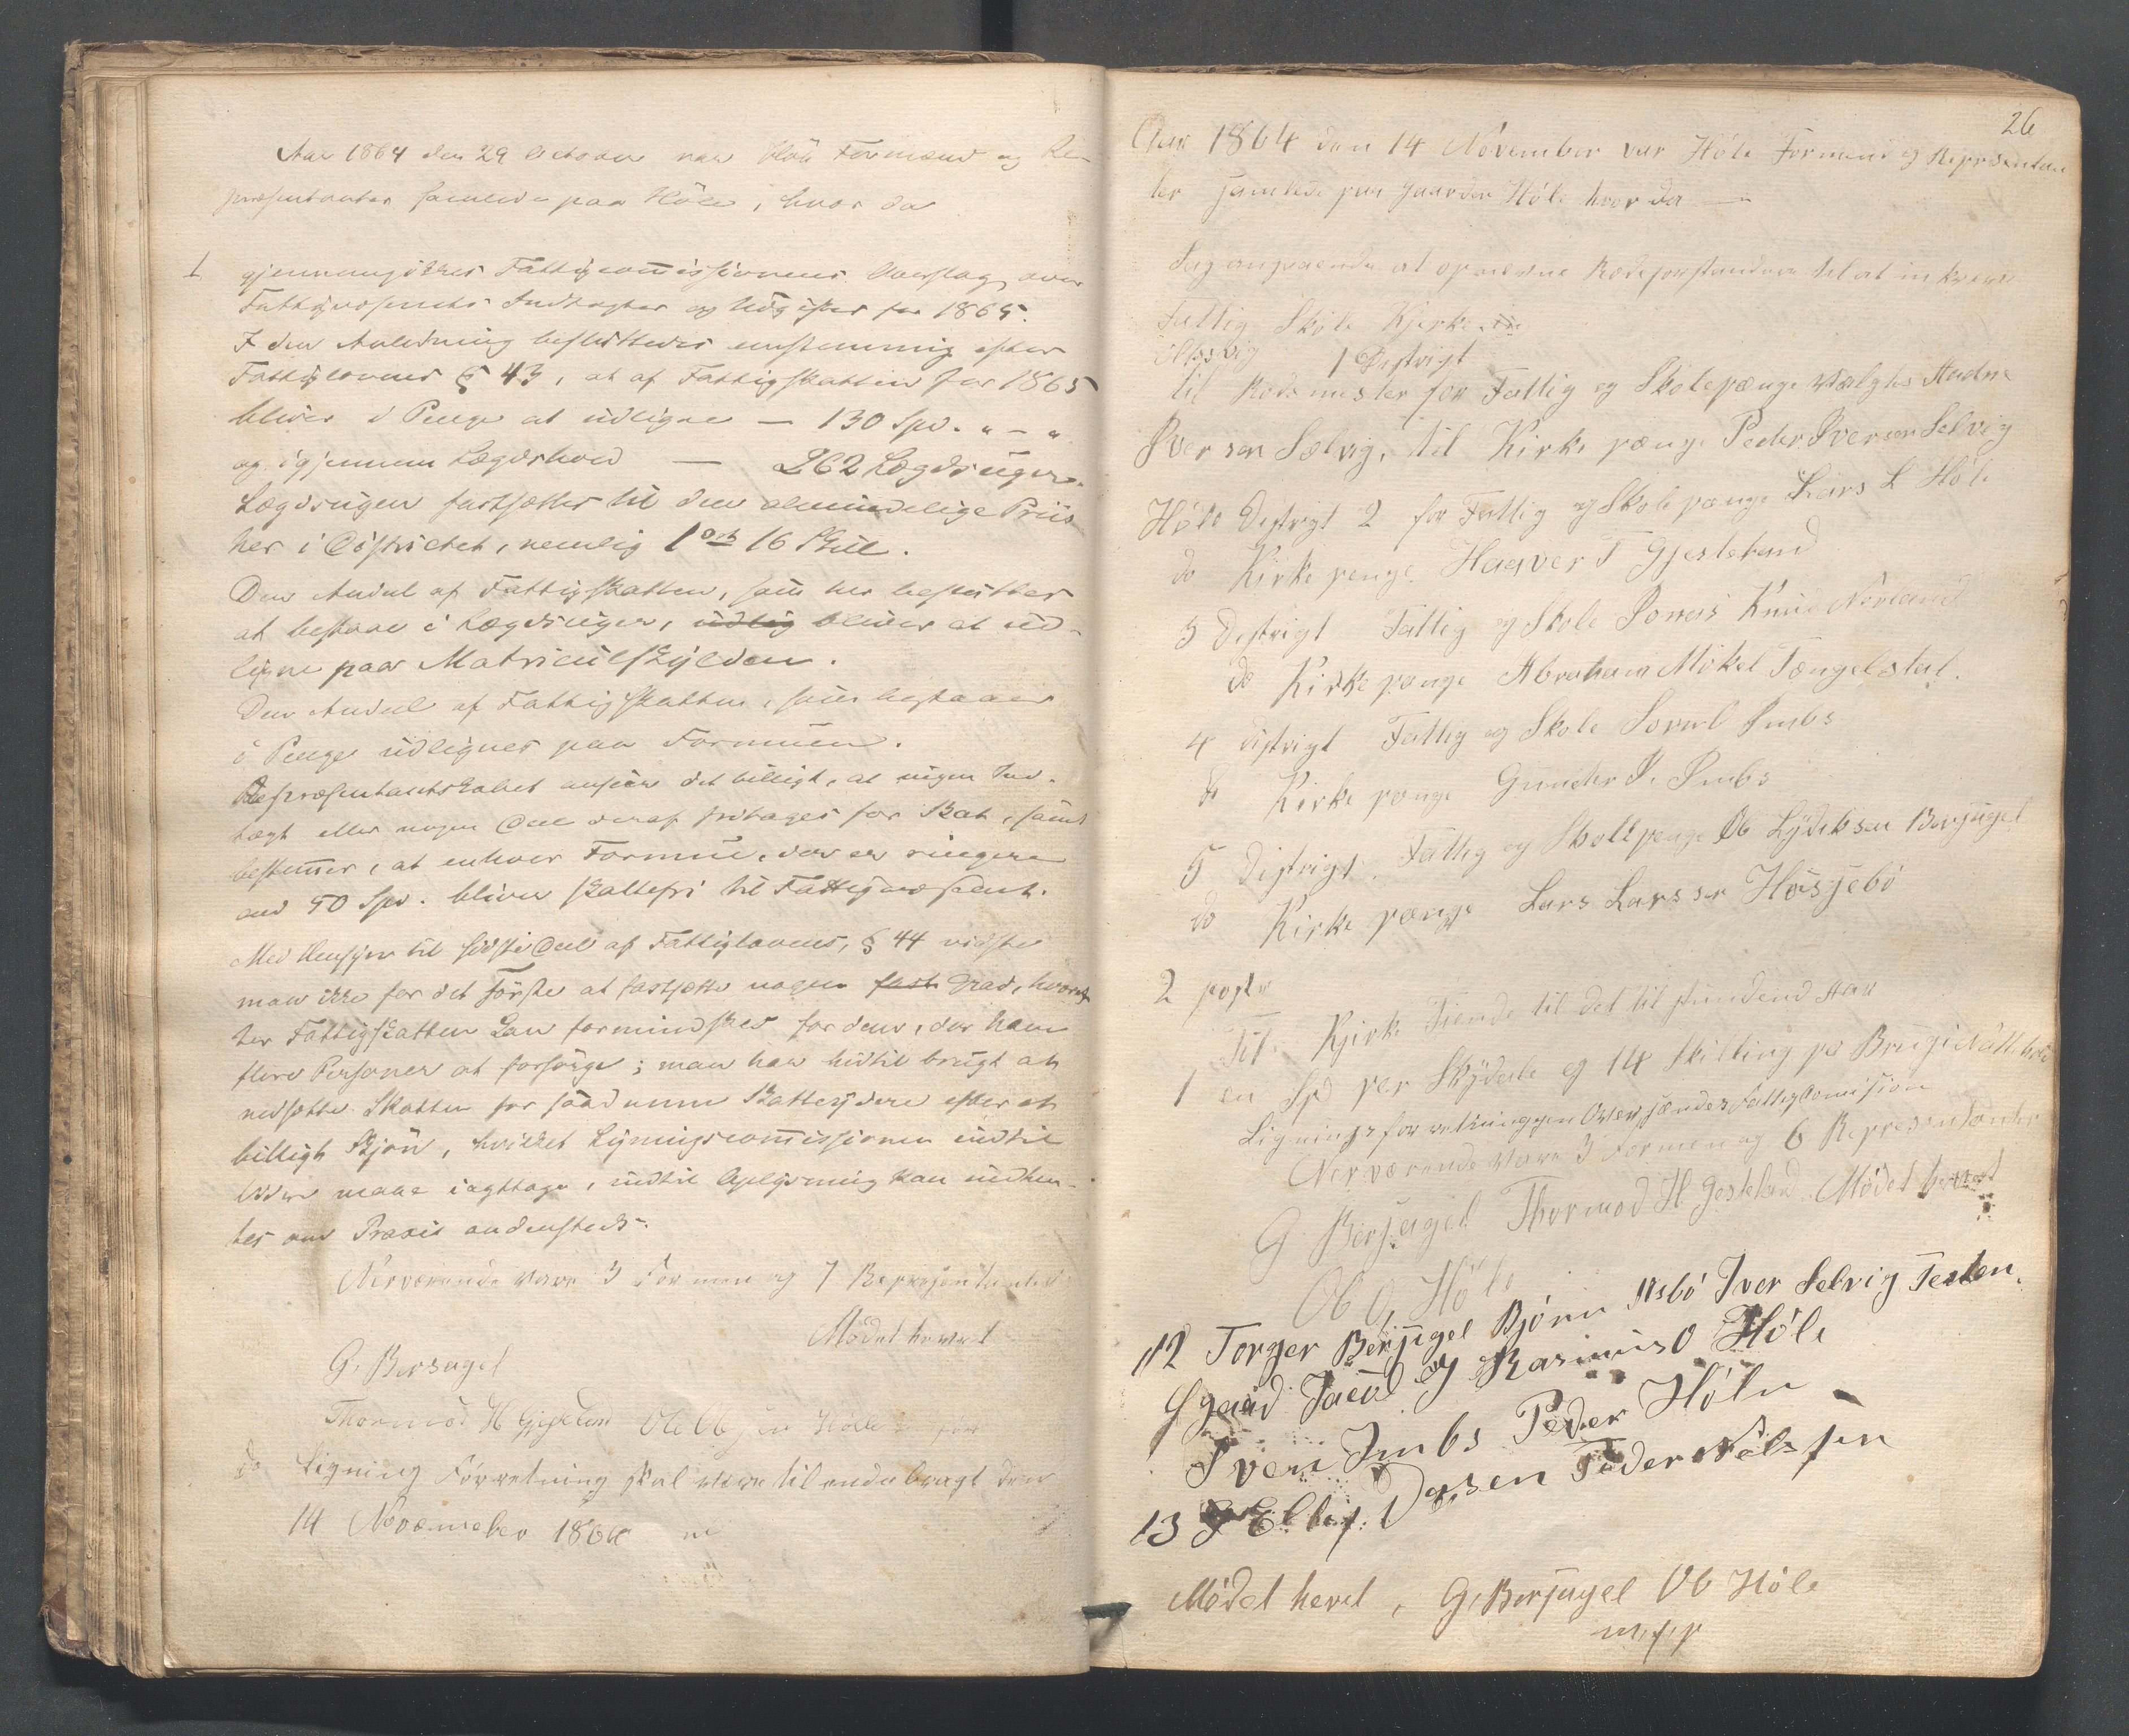 Aar 1864 den 29 October var Høle Formænd og Re-
præsentanter samlede paa Høle, hvor da
1 gjennemgikkes Fattigcommissionens Overslag over
Fattigvæsenets Indtægter og Udgifter for 1865.
I den Anledning besluttedes eenstemmig efter
Fattiglovens § 43, at af Fattigskatten for 1865
bliver i Penge at udligne — 130 Spd. " - "
og igjennem Lægdshold — 262 Lægdsuger.
Lægdsugen fastsættes til den almindelige Priis
her i Districtet, nemlig 1 ort 16 Skill.
Den Andel af Fattigskatten, som her besluttes
at bestaae i Lægdsuger, udlig bliver at ud-
ligne paa Matriculskylden.
Den Andel af Fattigskatten, som bestaaer
i Penge udlignes paa Formuen.
Repræsentantskabet anseer det billigt, at ingen Ind-
tægt eller nogen Deel deraf fritages for Skat, samt
bestemmer, at enhver Formue, der er ringere
end 50 Spd. bliver skattefri til Fattigvæsenet.
Med Hensyn til sidste Deel af Fattiglovens, § 44 vidste
man ikke for det Første at fastsætte nogen fast Grad, hvoref-
ter Fattigskatten kan formindskes for dem, der have
flere Personer at forsørge; man har hidtil brugt at
nedsætte Skatten for saadanne Skatteydere efter et
billigt Skjøn, hvilket Ligningscommissionen indtil
videre maae iagttage, indtil Oplysning kan indhen-
tes om Praxis andensteds.
Nerværende vare 3 Formen og 7 Representanter
Mødet hevet
G. Bersagel
Thormod H Gjesteland Ole Olsen Høle
do Ligning Forretning skal være tilendebragt den
14 Novæmeber 1864
26
Aar 1864 den 14 November var Høle Formend og Repræsentan
ter samlede paa gaarden Høle hvor da —
Sag angaaende at opnævne Rodeforstandere til at inkreve
Fattig Skole Kjerke
1 Distrigt
til Rodemester for Fattig og Skolepænge valgtes Andre
Iversen Selvig, til Kirke pænge Peder Iversen Selvig
Høle Distrigt 2 for Fattig og Skole pænge Lars L Høle
do Kirke penge Haaver T Gjesteland
3 Distrigt Fattig og Skole Penens Knud Norland
do Kirke pænge Abraham Mikel Tængelstat.
4 distrigt Fattig og Skole Sovel Imbs
do Kirke pænge Gunder I. Imbs
5 Distrigt. Fattig og Skole penge Ob Lydiksen Bersagel
do Kirke pænge Lars Larssen Høsjebø
2 post
Til Kjirke Tiende til det til stundend Aar
1 en Spd per Skyldale og 14 skilling pr Brugi
Ligningsforretninggen Oversænder Fattig Comision
Nerværende vare 3 Formen og 6 Representanter
G Bersagel Thormod H. Gesteland Mødet hevet
Ob O, Høle
12 Torger Bersagel Bjørn Asbø Iver Selvig Testen.
Rasmus O Høle
Sven Imbs Peder Høle
13 Peder Nelssen
Mødet hevet, G. Bersagel Ob Høle